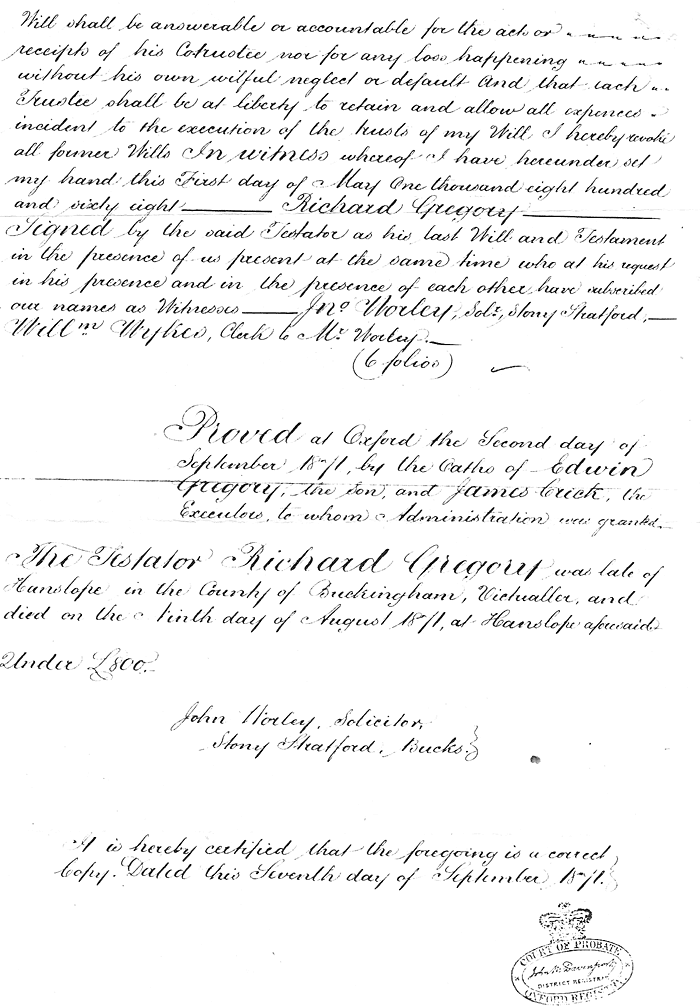 Will shall be answerable or accountable for the acts or
receipts of his Cotrustee nor for any loss happening
without his own wilful neglect or default And that each
Trustee shall be at liberty to retain and allow all expences
incident to the execution of the trusts of my Will I hereby revoke
all former Wills In witness whereof I have hereunder set
my hand this First day of May One thousand eight hundred
and sixty eight——— Richard Gregory———
Signed by the said Testator as his last Will and Testament
in the presence of us present at the same time who at his request
in his presence and in the presence of each other have subscribed
our names as Witnesses——— Jno Worley, Solr., Stony Stratford,—
Willm Wykes, Clerk to Mr Worley.—
(6 folios)
Proved at Oxford the Second day of
September 1871, by the Oaths of Edwin
Gregory, the son, and James Crick, the
Executors, to whom Administration was granted.
The Testator Richard Gregory was late of
Hanslope in the County of Buckingham, Victualler, and
died on the Ninth day of August 1871, at Hanslope aforesaid.
Under £800.
John Worley, Solicitor,
Stony Stratford, Bucks.
It is hereby certified that the foregoing is a correct
Copy. Dated this Seventh day of September 1871.
COURT OF PROBATE
John M Davenport
DISTRICT REGISTRAR
OXFORD REGISTRY